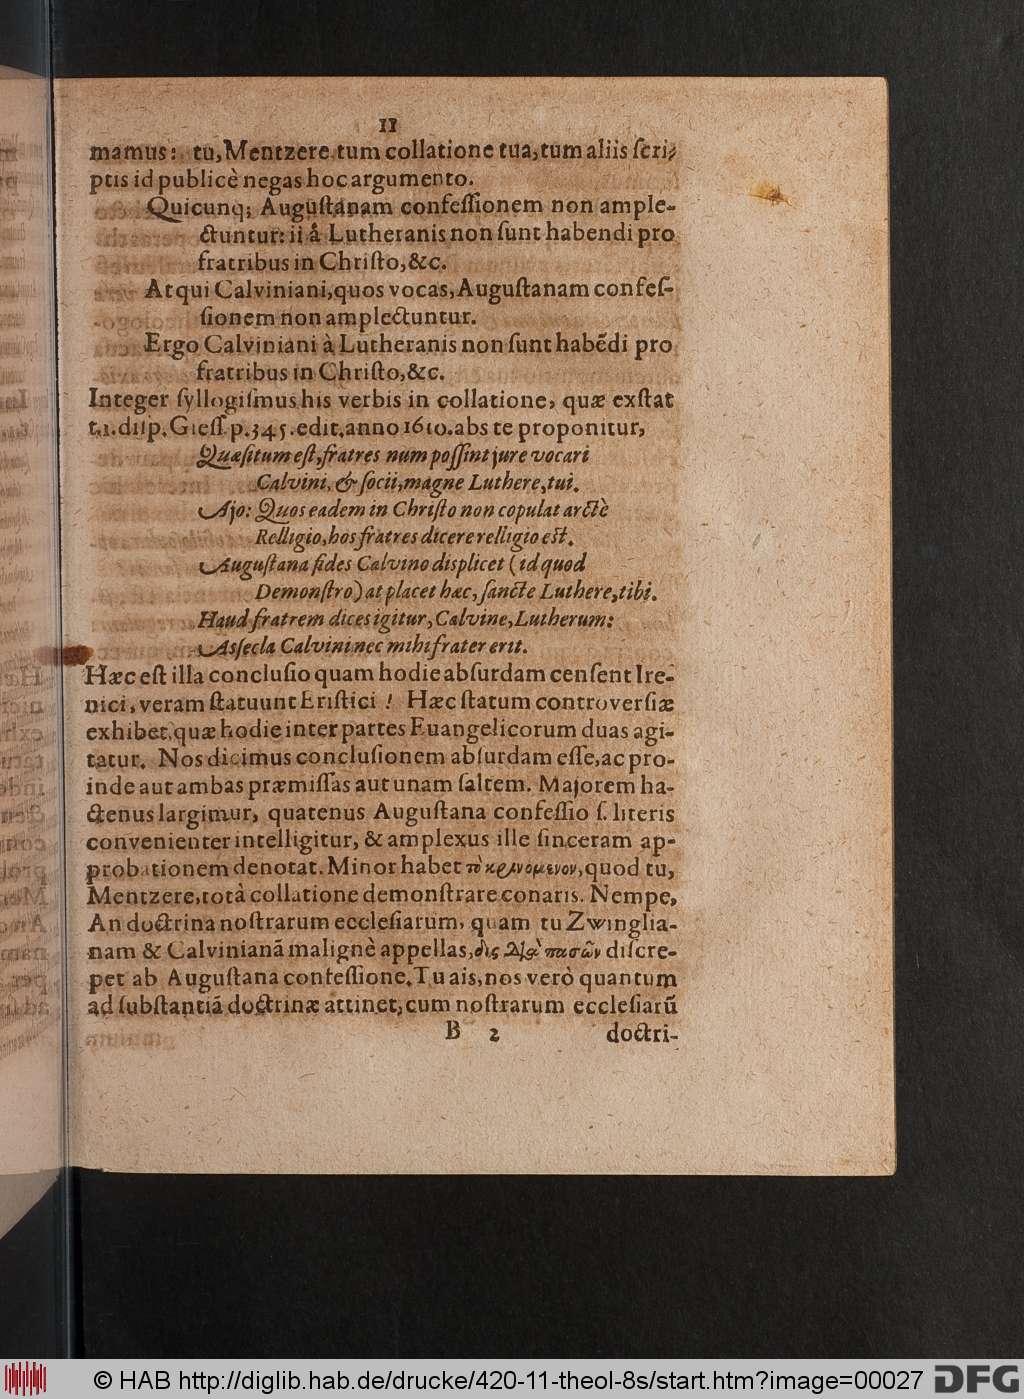 11
mamus: tu, Mentzere tum collatione tua, tum aliis ſcri-
ptis id publicè negas hoc argumento.
Quicunq; Auguſtanam confeſſionem non ample-
ctuntur: ii á Lutheranis non ſunt habendi pro
fratribus in Chriſto, &c.
Atqui Calviniani, quos vocas, Auguſtanam confeſ-
ſionem non amplectuntur.
Ergo Calviniani à Lutheranis non ſunt habẽdi pro
fratribus in Chriſto, &c.
Integer ſyllogiſmus his verbis in collatione, quæ exſtat
t. 1. diſp. Gieſſ. p. 345. edit. anno 1610. abs te proponitur,
Quæſitum eſt, fratres num poſſint jure vocari
Calvini, & ſocii, magne Luthere, tui.
Ajo: Quos eadem in Chriſto non copulat arctè
Relligio, hos fratres dicere relligio eſt.
Auguſtana fides Calvino displicet (id quod
Demonſtro) at placet hæc, ſancte Luthere, tibi.
Haud fratrem dices igitur, Calvine, Lutherum:
Aſſecla Calvini nec mihi frater erit.
Hæc eſt illa concluſio quam hodie abſurdam cenſent Ire-
nici, veram ſtatuunt Eriſtici! Hæc ſtatum controverſiæ
exhibet, quæ hodie inter partes Euangelicorum duas agi-
tatur. Nos dicimus concluſionem abſurdam eſſe, ac pro-
inde aut ambas præmiſſas aut unam ſaltem. Majorem ha-
ctenus largimur, quatenus Auguſtana confeſſio ſ. literis
convenienter intelligitur, & amplexus ille ſinceram ap-
probationem denotat. Minor habet τὸ κρινόμενον, quod tu,
Mentzere, totâ collatione demonſtrare conaris. Nempe,
An doctrina noſtrarum eccleſiarum, quam tu Zwinglia-
nam & Calvinianã malignè appellas, δὶς διὰ πασῶν diſcre-
pet ab Auguſtana confeſſione. Tu ais, nos verò quantum
ad ſubſtantiã doctrinæ attinet, cum noſtrarum eccleſiarũ
B 2 doctri-
© HAB http://diglib.hab.de/drucke/420-11-theol-8s/start.htm?image=00027
DFG